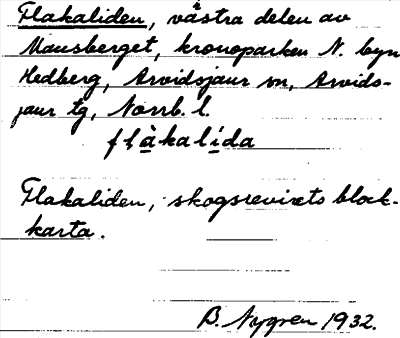 Flakaliden, västra delen av
Mausberget, kronoparken N. byn
Hedberg, Arvidsjaur sn, Arvids-
jaur tg, Norrb. l.
flàkalída
Flakaliden, skogsrevirets block-
karta.
B. Nygren 1932.